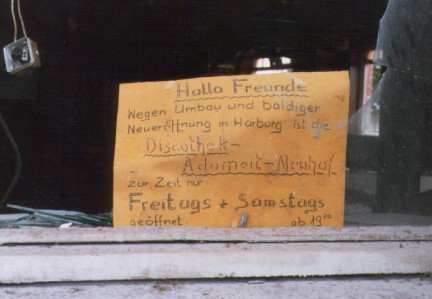 Hallo Freunde
Wegen Umbau und baldiger
Neueröffnung in Harburg ist die
Discothek-
Adomeit-Neuhof
zur Zeit nur
Freitags + Samstags
geöffnet. ab 19⁰⁰